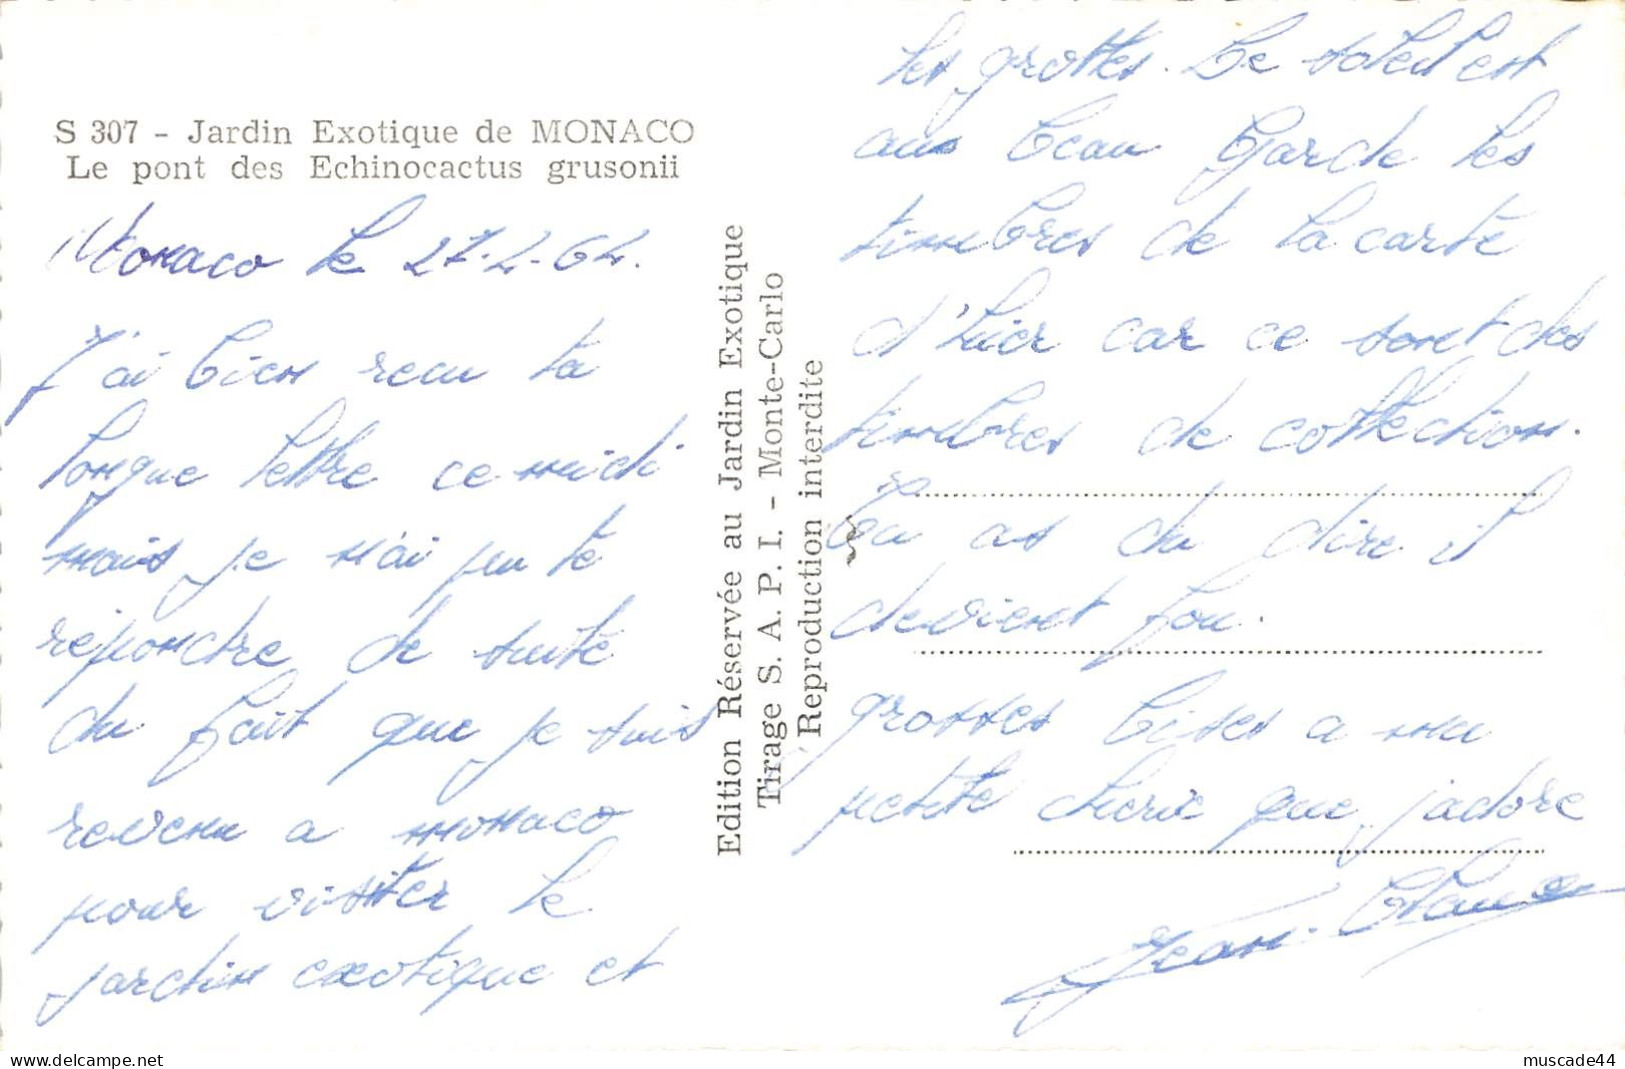 S 307 - Jardin Exotique de MONACO
Le pont des Echinocactus grusonii
Monaco le 27-2-64.
J'ai bien recu ta
longue lettre ce midi
mais je n'ai pu te
répondre de suite
du fait que je suis
revenu a monaco
pour visiter le
jardin exotique et
Edition Réservée au Jardin Exotique
Tirage S. A. P. I. - Monte-Carlo
Reproduction interdite
les grottes. Le soleil est
au beau Garde les
timbres de la carte
d'hier car ce sont des
timbres de collection.
Tu as du dire il
devient fou.
grosses bises a ma
petite cherie que j'adore
Jean-Claude
muscade44